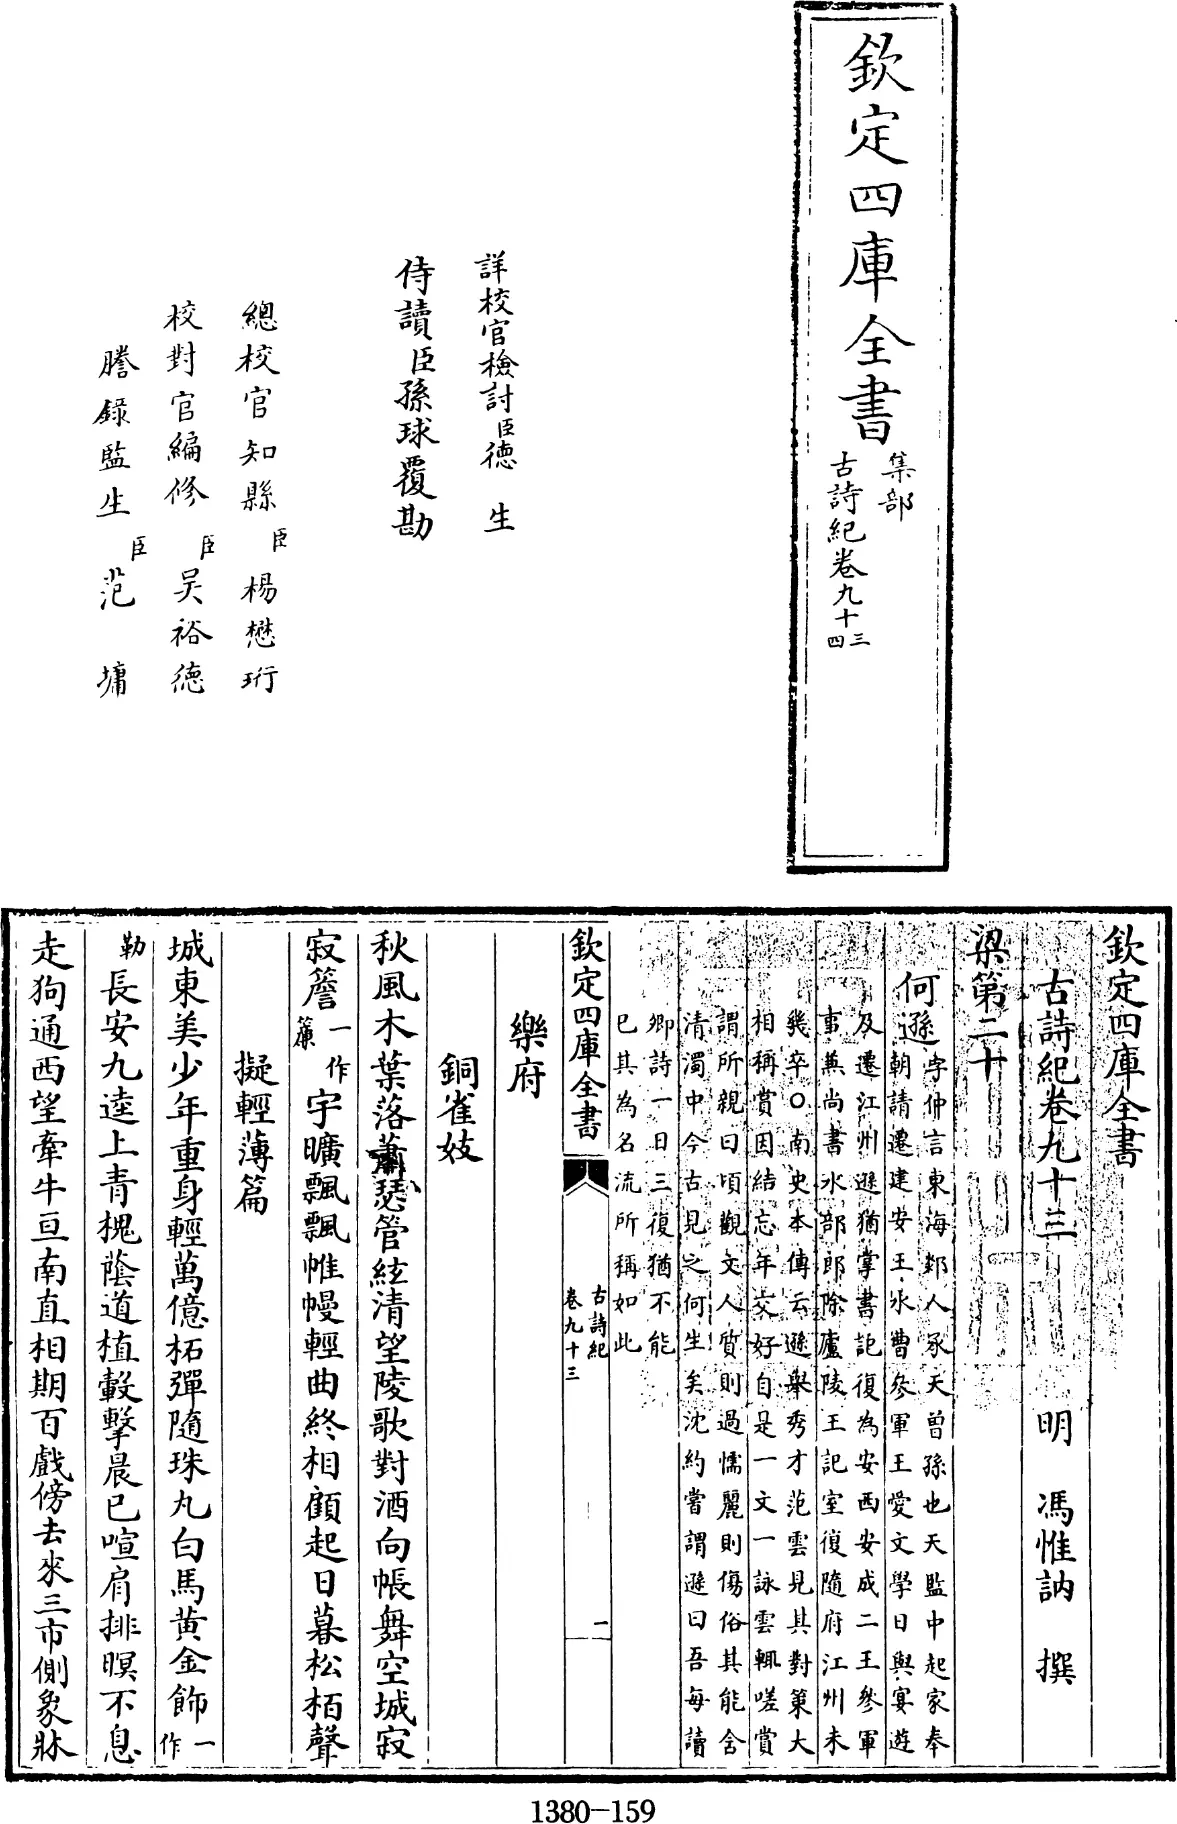 欽定四庫全書
集部
古詩紀卷九十三
四
詳校官檢討臣德生
侍讀臣孫球覆勘
總校官知縣臣楊懋珩
校對官編修臣吳裕德
謄錄監生臣范墉
欽定四庫全書
古詩紀卷九十三
明 馮惟訥 撰
梁第二十
何遜
字仲言東海郯人承天曾孫也天監中起家奉
朝請遷建安王水曹參軍王愛文學日與宴遊
及遷江州遜猶掌書記復為安西安成二王參軍
事兼尚書水部郎除廬陵王記室復隨府江州未
幾卒○南史本傳云遜舉秀才范雲見其對策大
相稱賞因結忘年交好自是一文一詠雲輒嗟賞
謂所親曰頃觀文人質則過懦麗則傷俗其能含
清濁中今古見之何生矣沈約嘗謂遜曰吾每讀
卿詩一日三復猶不能
已其為名流所稱如此
欽定四庫全書
古詩紀
卷九十三
一
樂府
銅雀妓
秋風木葉落蕭瑟管絃清望陵歌對酒向帳舞空城寂
寂簷一作簾宇曠飄飄帷幔輕曲終相顧起日暮松栢聲
擬輕薄篇
城東美少年重身輕萬億柘彈隨珠丸白馬黃金飾一作
勒長安九逵上青槐蔭道植轂擊晨已喧肩排暝不息
走狗通西望牽牛亘南直相期百戲傍去來三市側象牀
1380-159